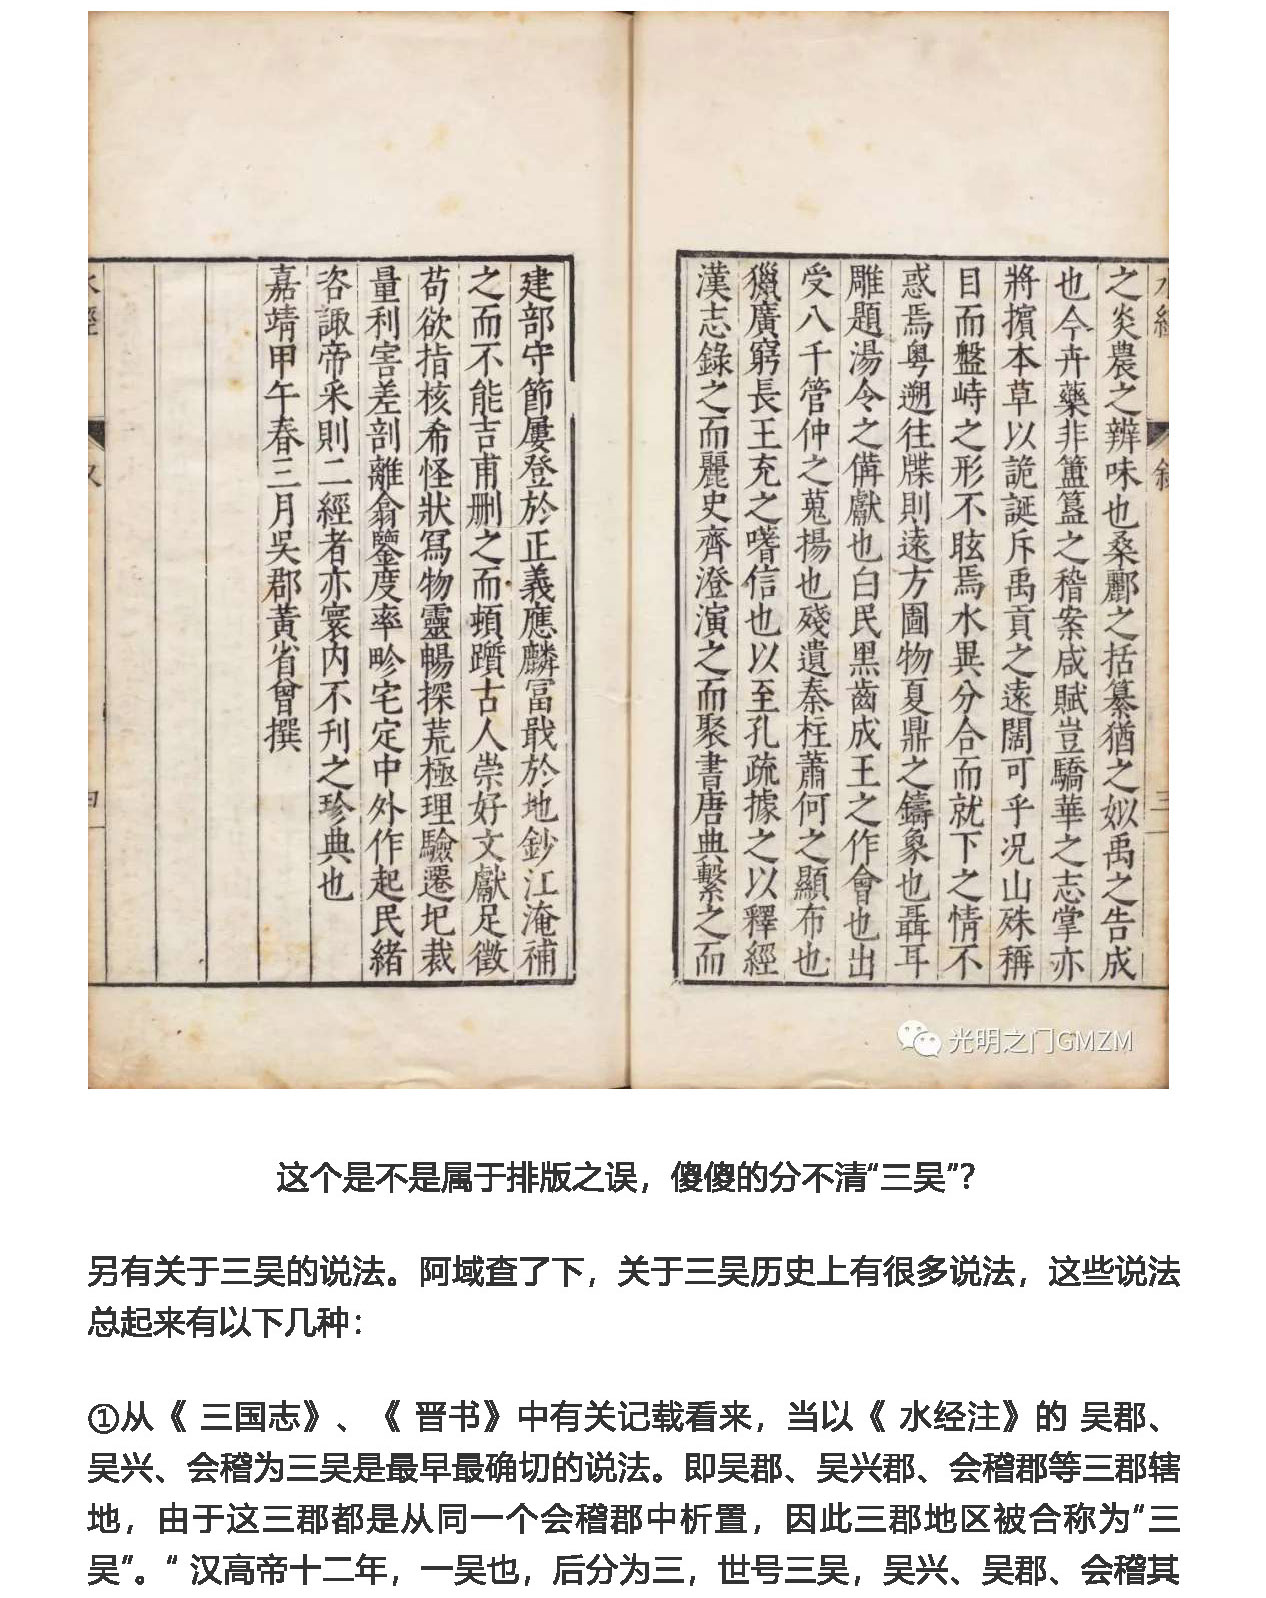 水經
之炎農之辨味也桑酈之括纂猶之姒禹之告成
也今卉藥非簠簋之稽案咸賦豈驕華之志掌亦
將擯本草以詭誕斥禹貢之遠闊可乎况山殊稱
目而盤峙之形不眩焉水異分合而就下之情不
惑焉粤遡往牒則遠方圖物夏鼎之鑄象也聶耳
雕題湯令之備獻也白民黑齒成王之作會也出
受八千管仲之蒐揚也殘遺秦柱蕭何之顯布也
獵廣窮長王充之嗜信也以至孔疏據之以釋經
漢志錄之而麗史齊澄演之而聚書唐典繫之而
建部守節屢登於正義應麟冨戢於地鈔江淹補
之而不能吉甫刪之而頓躓古人崇好文獻足徵
苟欲指核希怪狀寫物靈暢探荒極理驗遷圮裁
量利害差剖離翕鑒度率畛宅定中外作起民緒
咨諏帝采則二經者亦寰内不刊之珍典也
嘉靖甲午春三月吳郡黃省曾撰
光明之门GMZM
这个是不是属于排版之误，傻傻的分不清“三吴”？
另有关于三吴的说法。阿域查了下，关于三吴历史上有很多说法，这些说法
总起来有以下几种：
①从《 三国志》、《 晋书》中有关记载看来，当以《 水经注》的 吴郡、
吴兴、会稽为三吴是最早最确切的说法。即吴郡、吴兴郡、会稽郡等三郡辖
地，由于这三郡都是从同一个会稽郡中析置，因此三郡地区被合称为“三
吴”。“ 汉高帝十二年，一吴也，后分为三，世号三吴，吴兴、吴郡、会稽其